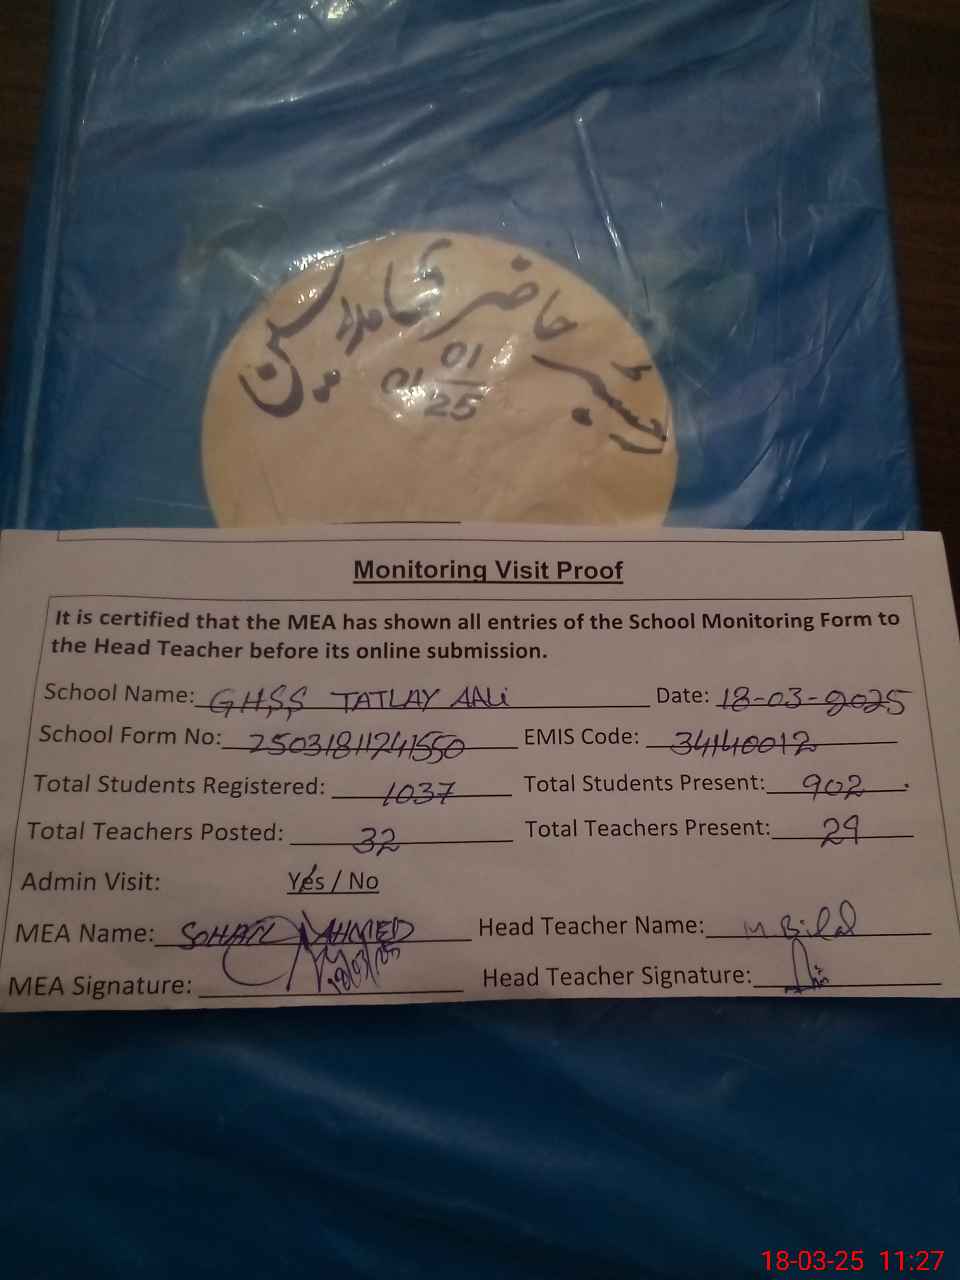 رجسٹر حاضری معلمین
01
01 25
Monitoring Visit Proof
It is certified that the MEA has shown all entries of the School Monitoring Form to
the Head Teacher before its online submission.
School Name: GHSS TATLAY AALI Date: 18-03-2025
School Form No: 25031811241550 EMIS Code: 34140012
Total Students Registered: 1037 Total Students Present: 902
Total Teachers Posted: 32 Total Teachers Present: 29
Admin Visit: Yes / No
MEA Name: SOHAIL AHMED Head Teacher Name: M Bilal
MEA Signature: 18/03/25 Head Teacher Signature:
18-03-25 11:27